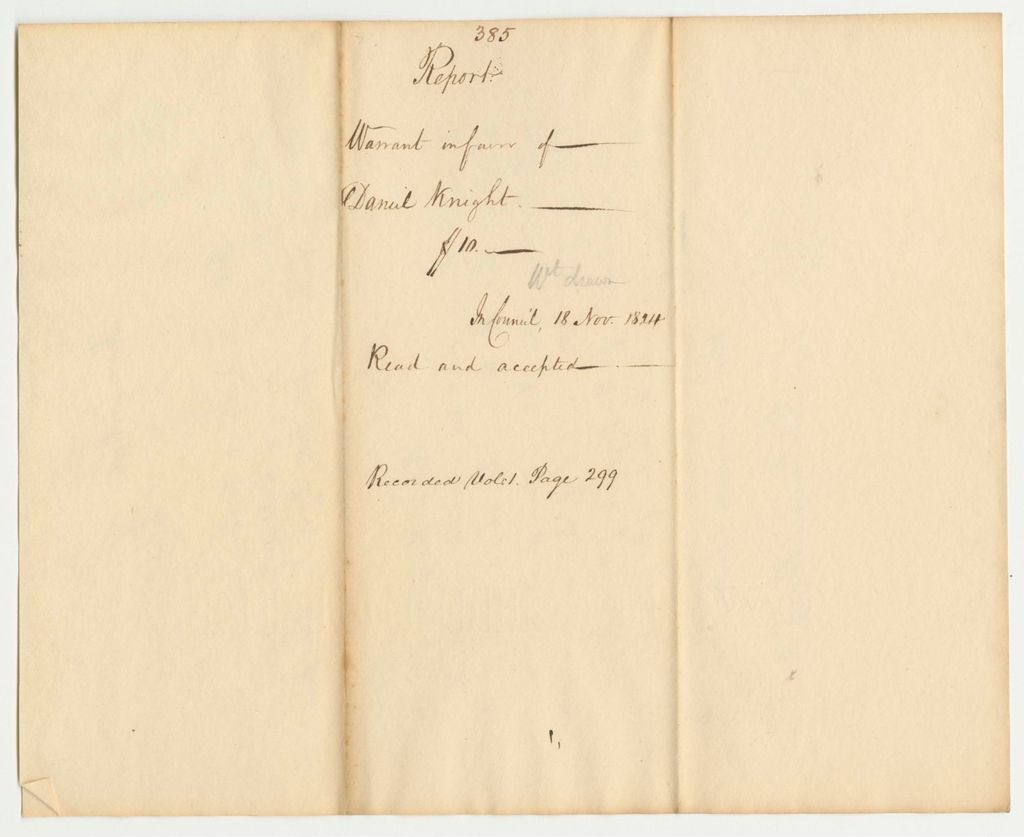 385
Report
Warrant in favor of
Daniel Knight.
$10.
Wt drawn
In Council, 18 Nov. 1824
Read and accepted
Recorded Vol. 1. Page 299